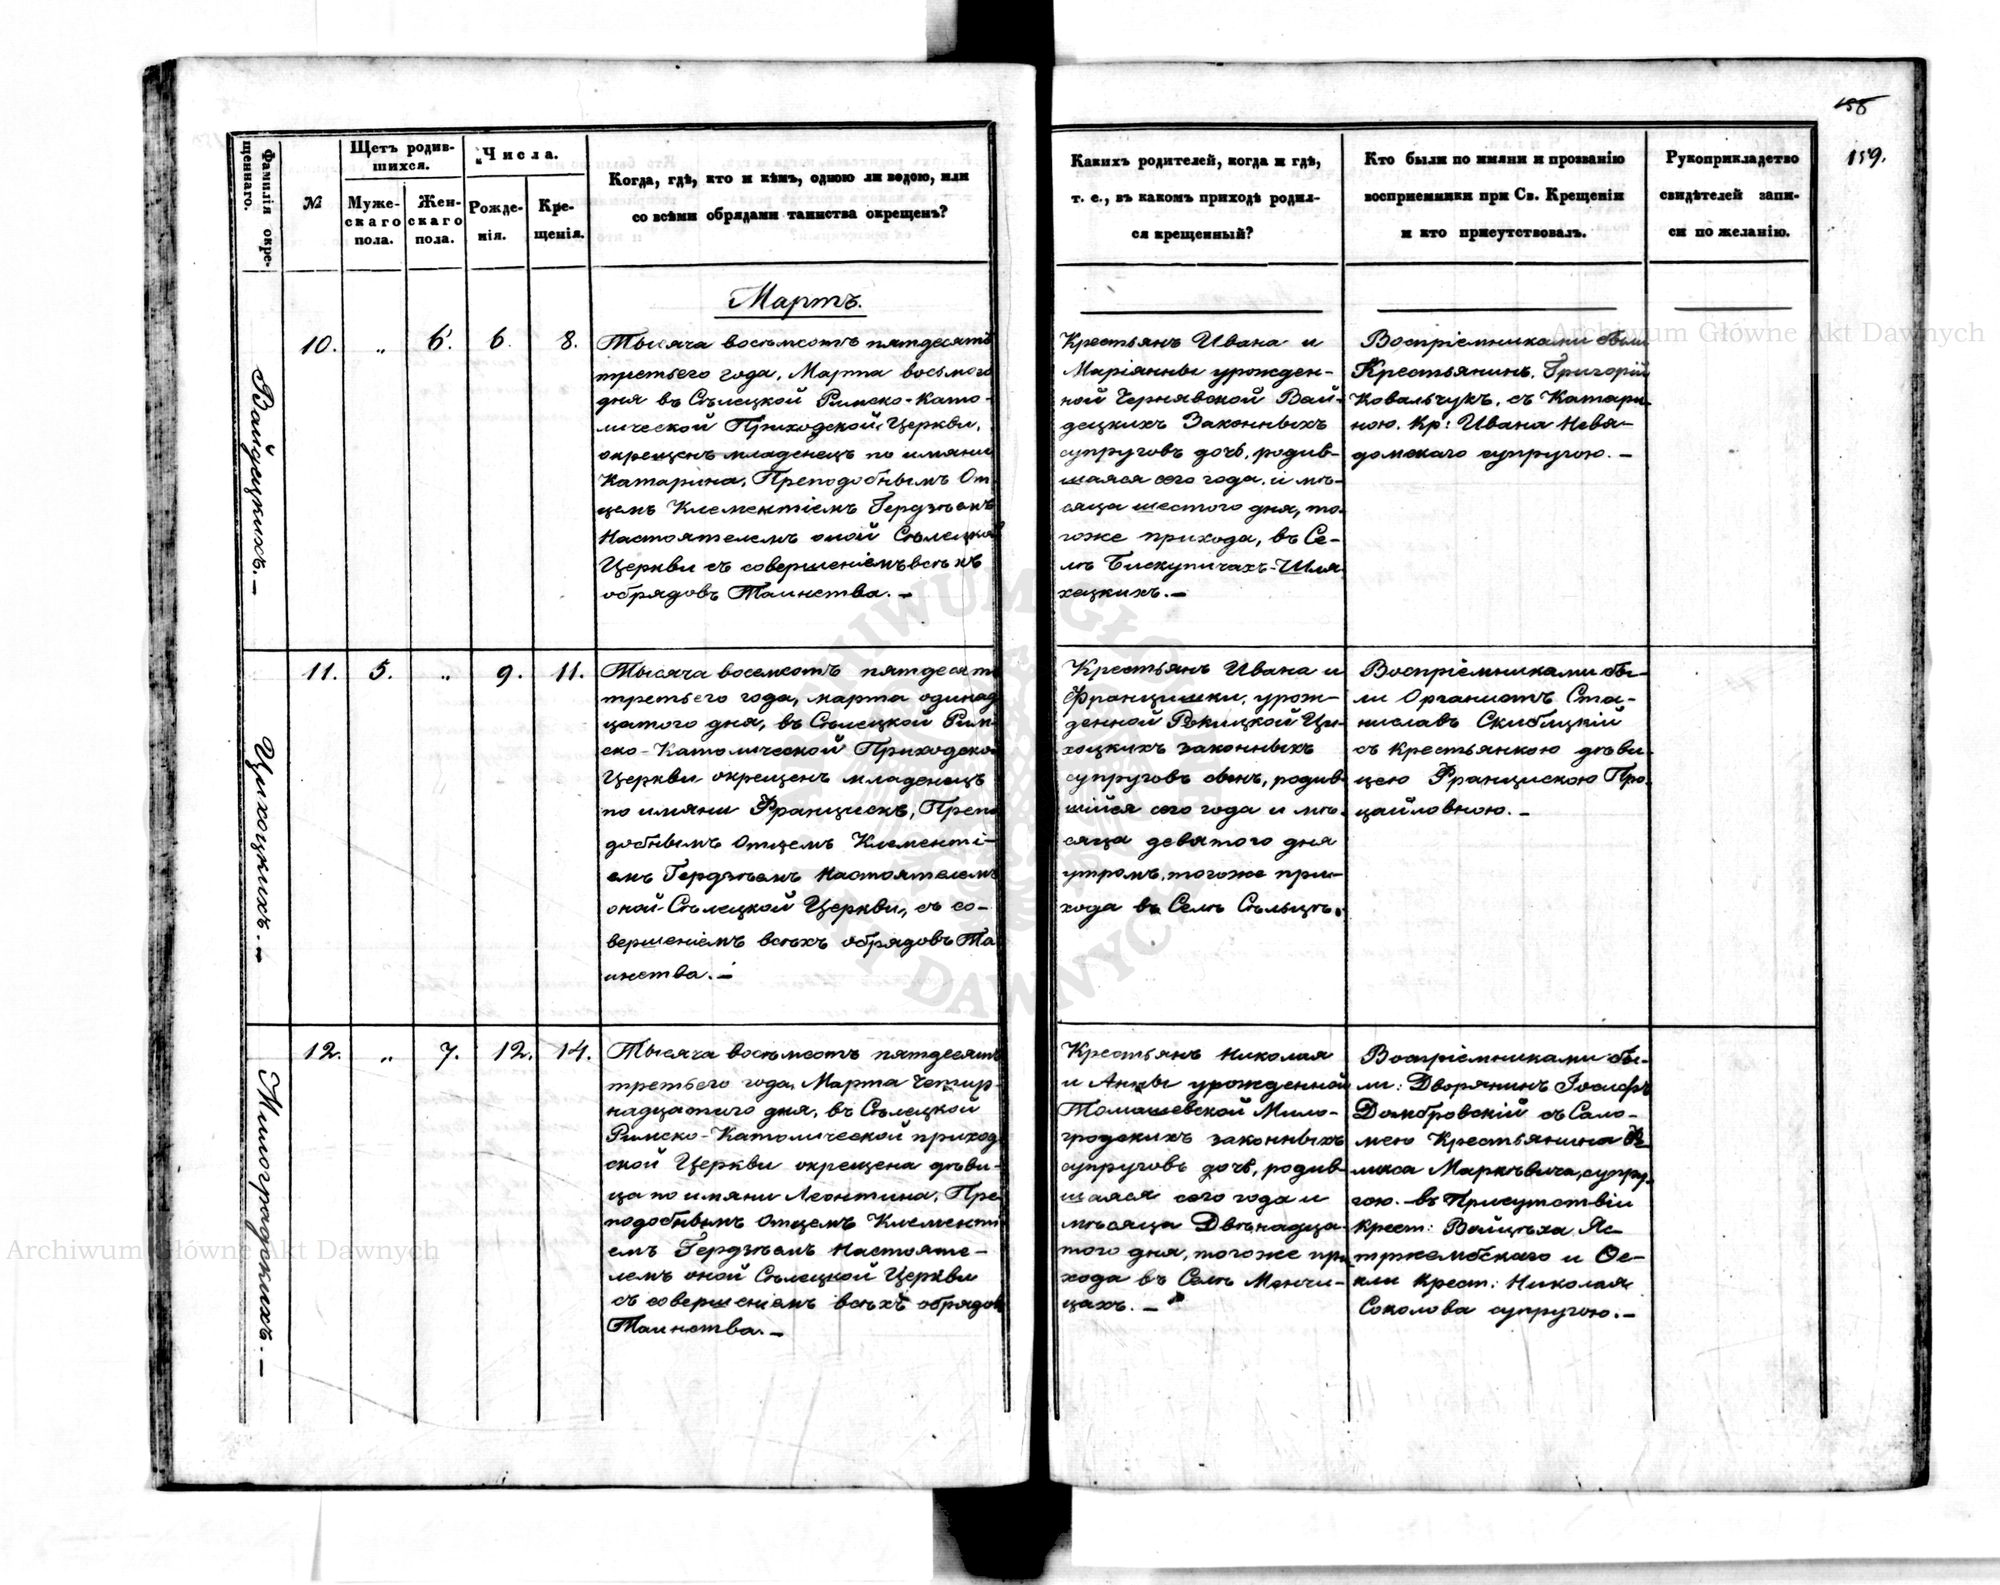 158
159.
Фамилія окре-
щеннаго.
№
Щетъ родив-
шихся.
Муже-
скаго
пола.
Жен-
скаго
пола.
Числа.
Рожде-
нія.
Кре-
щенія.
Когда, гдѣ, кто и кѣмъ, одною ли водою, или
со всѣми обрядами таинства окрещенъ?
Какихъ родителей, когда и гдѣ,
т. е., въ какомъ приходѣ родил-
ся крещенный?
Кто были по имяни и прозванію
воспріемники при Св. Крещеніи
и кто присутствовалъ.
Рукоприкладство
свидѣтелей запи-
си по желанію.
Мартъ.
Вайдецкихъ. —
10. „ 6. 6. 8.
Тысяча восемьсотъ пятдесятъ
третьего года, Марта восьмого
дня въ Сѣлецкой Римско-Като-
лической Приходской Церкви,
окрещенъ младенецъ по имяни
Катарина, Преподобнымъ От-
цемъ Клементіемъ Гердзѣемъ
Настоятелемъ оной Сѣлецкой
Церкви съ совершеніемъ всѣхъ
обрядовъ Таинства. —
Крестьянъ Ивана и
Маріянны урожден-
ной Чернявской Вай-
децкихъ Законныхъ
супруговъ дочь, родив-
шаяся сего года и мѣ-
сяца шестого дня, то-
гоже прихода, въ Се-
лѣ Бискупичахъ-Шля-
хецкихъ. —
Воспріемниками были
Крестьянинъ Григорій
Ковальчукъ, съ Катари-
ною. Кр: Ивана Невя-
домскаго супругою. —
Цихоцкихъ. —
11. 5. „ 9. 11.
Тысяча восемсотъ пятдесятъ
третьего года, марта одинад-
цатого дня, въ Сѣлецкой Рим-
ско-Католической Приходской
Церкви окрещенъ младенецъ
по имяни Францискъ, Препо-
добнымъ Отцемъ Клементі-
емъ Гердзѣемъ Настоятелемъ
оной Сѣлецкой Церкви, съ со-
вершеніемъ всѣхъ обрядовъ Та-
инства. —
Крестьянъ Ивана и
Францишки, урож-
денной Рокицкой Ци-
хоцкихъ законныхъ
супруговъ сынъ, родив-
шійся сего года и мѣ-
сяца девятого дня
утромъ, тогоже при-
хода въ Селѣ Сѣльцѣ.
Воспріемниками бы-
ли Органистъ Ста-
ниславъ Скиблицкій
съ Крестьянкою дѣви-
цею Францискою Про-
цайловною. —
Милоградскихъ. —
12. „ 7. 12. 14.
Тысяча восемьсотъ пятдесятъ
третьего года, Марта Четыр-
надцатого дня, въ Сѣлецкой
Римско-Католической приход-
ской Церкви окрещена дѣви-
ца по имяни Леонтина, Пре-
подобнымъ Отцемъ Клементі-
емъ Гердзѣемъ Настояте-
лемъ оной Сѣлецкой Церкви
съ совершеніемъ всѣхъ обрядовъ
Таинства. —
Крестьянъ Николая
и Анны урожденной
Томашевской Мило-
гродскихъ законныхъ
супруговъ дочь, родив-
шаяся сего года и
мѣсяца Двѣнадца-
того дня, тогоже при-
хода въ Селѣ Менчи-
цахъ. —
Воспріемниками бы-
ли: Дворянинъ Іосифъ
Домбровскій съ Сало-
мею Крестьянина
Марковича, супру-
гою. въ Присутствіи
Крест: Войцѣха Яс-
тржембскаго и
Крест: Николая
Соколова супругою. —
Archiwum Główne Akt Dawnych
Archiwum Główne Akt Dawnych